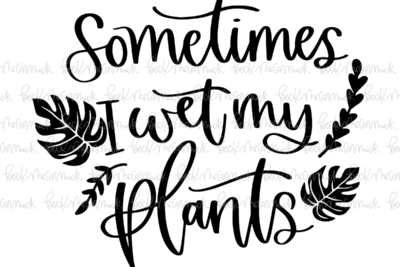 Sometimes
I wet my
plants